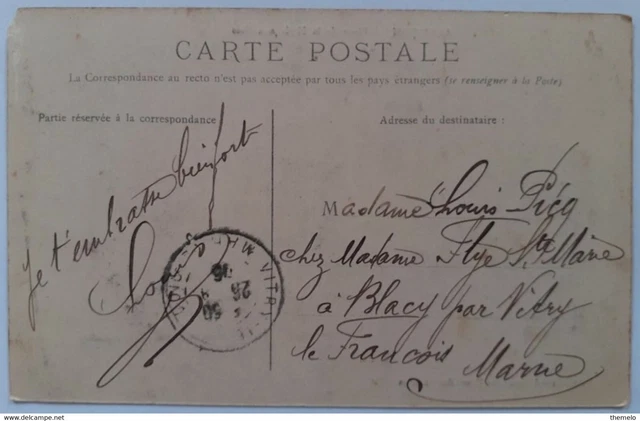 CARTE POSTALE
La Correspondance au recto n'est pas acceptée par tous les pays étrangers (se renseigner à la Poste)
Partie réservée à la correspondance
Je t'embrasse bien fort
Louis
Adresse du destinataire :
Madame Louis Picq
chez Madame Flye Ste Marie
à Blacy par Vitry
le François Marne
VITRY
MARNE
26
themelo
www.delcampe.net